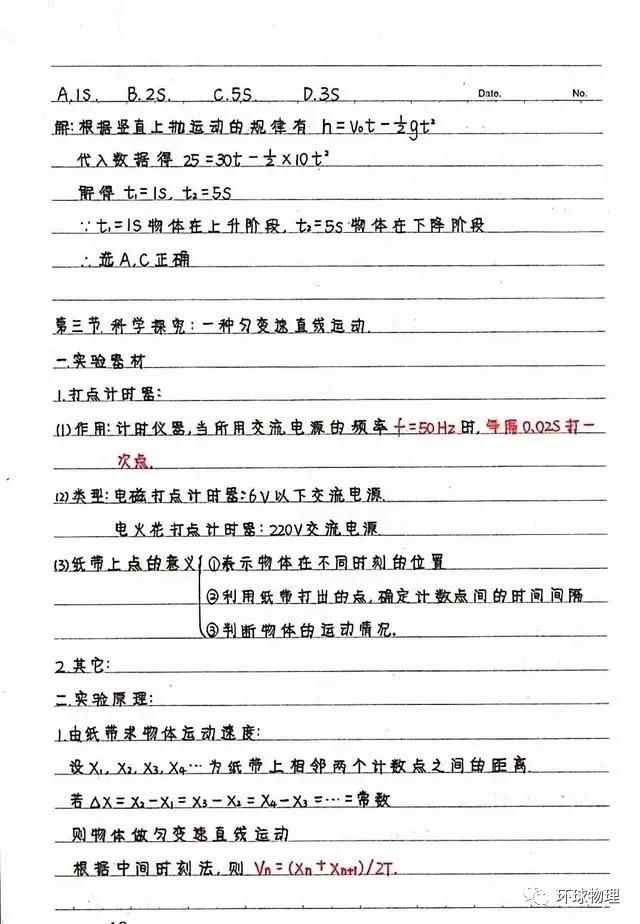 A.1S. B.2S. C.5S. D.3S Date. No.
解:根据竖直上抛运动的规律有 h=V₀t-½gt²
代入数据得 25=30t-½×10t²
解得 t₁=1S, t₂=5S
∵t₁=1S物体在上升阶段, t₂=5S物体在下降阶段
∴选A,C正确
第三节.科学探究:一种匀变速直线运动.
一.实验器材
1.打点计时器:
(1)作用:计时仪器,当所用交流电源的频率f=50Hz时,每隔0.02S打一
次点.
(2)类型:电磁打点计时器:6V以下交流电源.
电火花打点计时器:220V交流电源
(3)纸带上点的意义{①表示物体在不同时刻的位置
②利用纸带打出的点,确定计数点间的时间间隔
③判断物体的运动情况.
2.其它:
二.实验原理:
1.由纸带求物体运动速度:
设X₁,X₂,X₃,X₄…为纸带上相邻两个计数点之间的距离.
若△X=X₂-X₁=X₃-X₂=X₄-X₃=…=常数
则物体做匀变速直线运动
根据中间时刻法,则 Vn=(Xn+Xn+1)/2T.
环球物理